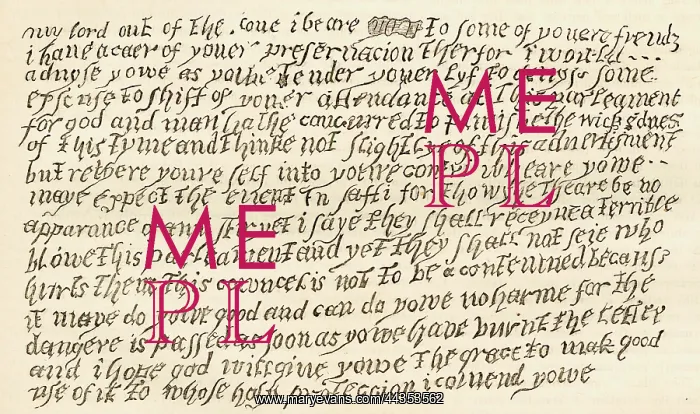 my lord out of the . loue i beare to some of youere frendz
i haue a caer of youer preseruacion therfor i would ...
aduyse yowe as you tender youer lyf to some
exscuse to shift of youer attendance at this parleament
for god and man hathe concurred to punishe the wickednes
of this tyme and thinke not slightlye of this aduertisment
but retyere youre self into youre contri wheare yowe ..
maye expect the euent in safti for thowghe theare be no
apparance of anni stir yet i saye they shall receyue a terrible
blowe this parleament and yet they shall not seie who
hurts them this cowncel is not to be contemned becaus
it maye do yowe good and can do yowe no harme for the
dangere is passed as soon as yowe have burnt the letter
and i hope god will giue yowe the grace to mak good
use of it to whose holy protection i comend yowe
ME
PL
ME
PL
www.maryevans.com/44353562